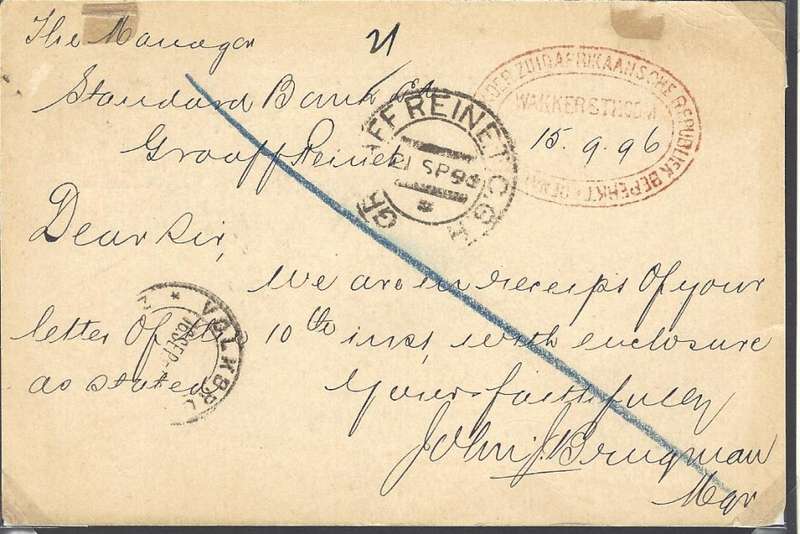 The Manager
21
Standard Bank Ltd
Graaff Reinet
15.9.96
DER ZUID AFRIKAANSCHE REPUBLIEK BEPERKT
WAKKERSTROOM
GRAAFF REINET C.G.H
21 SP 96
Dear Sir,
We are in receipt of your
letter of the 10th inst, with enclosure
as stated
Yours faithfully
John J. Brugman
Mgr
VOLKSR
16 SEP